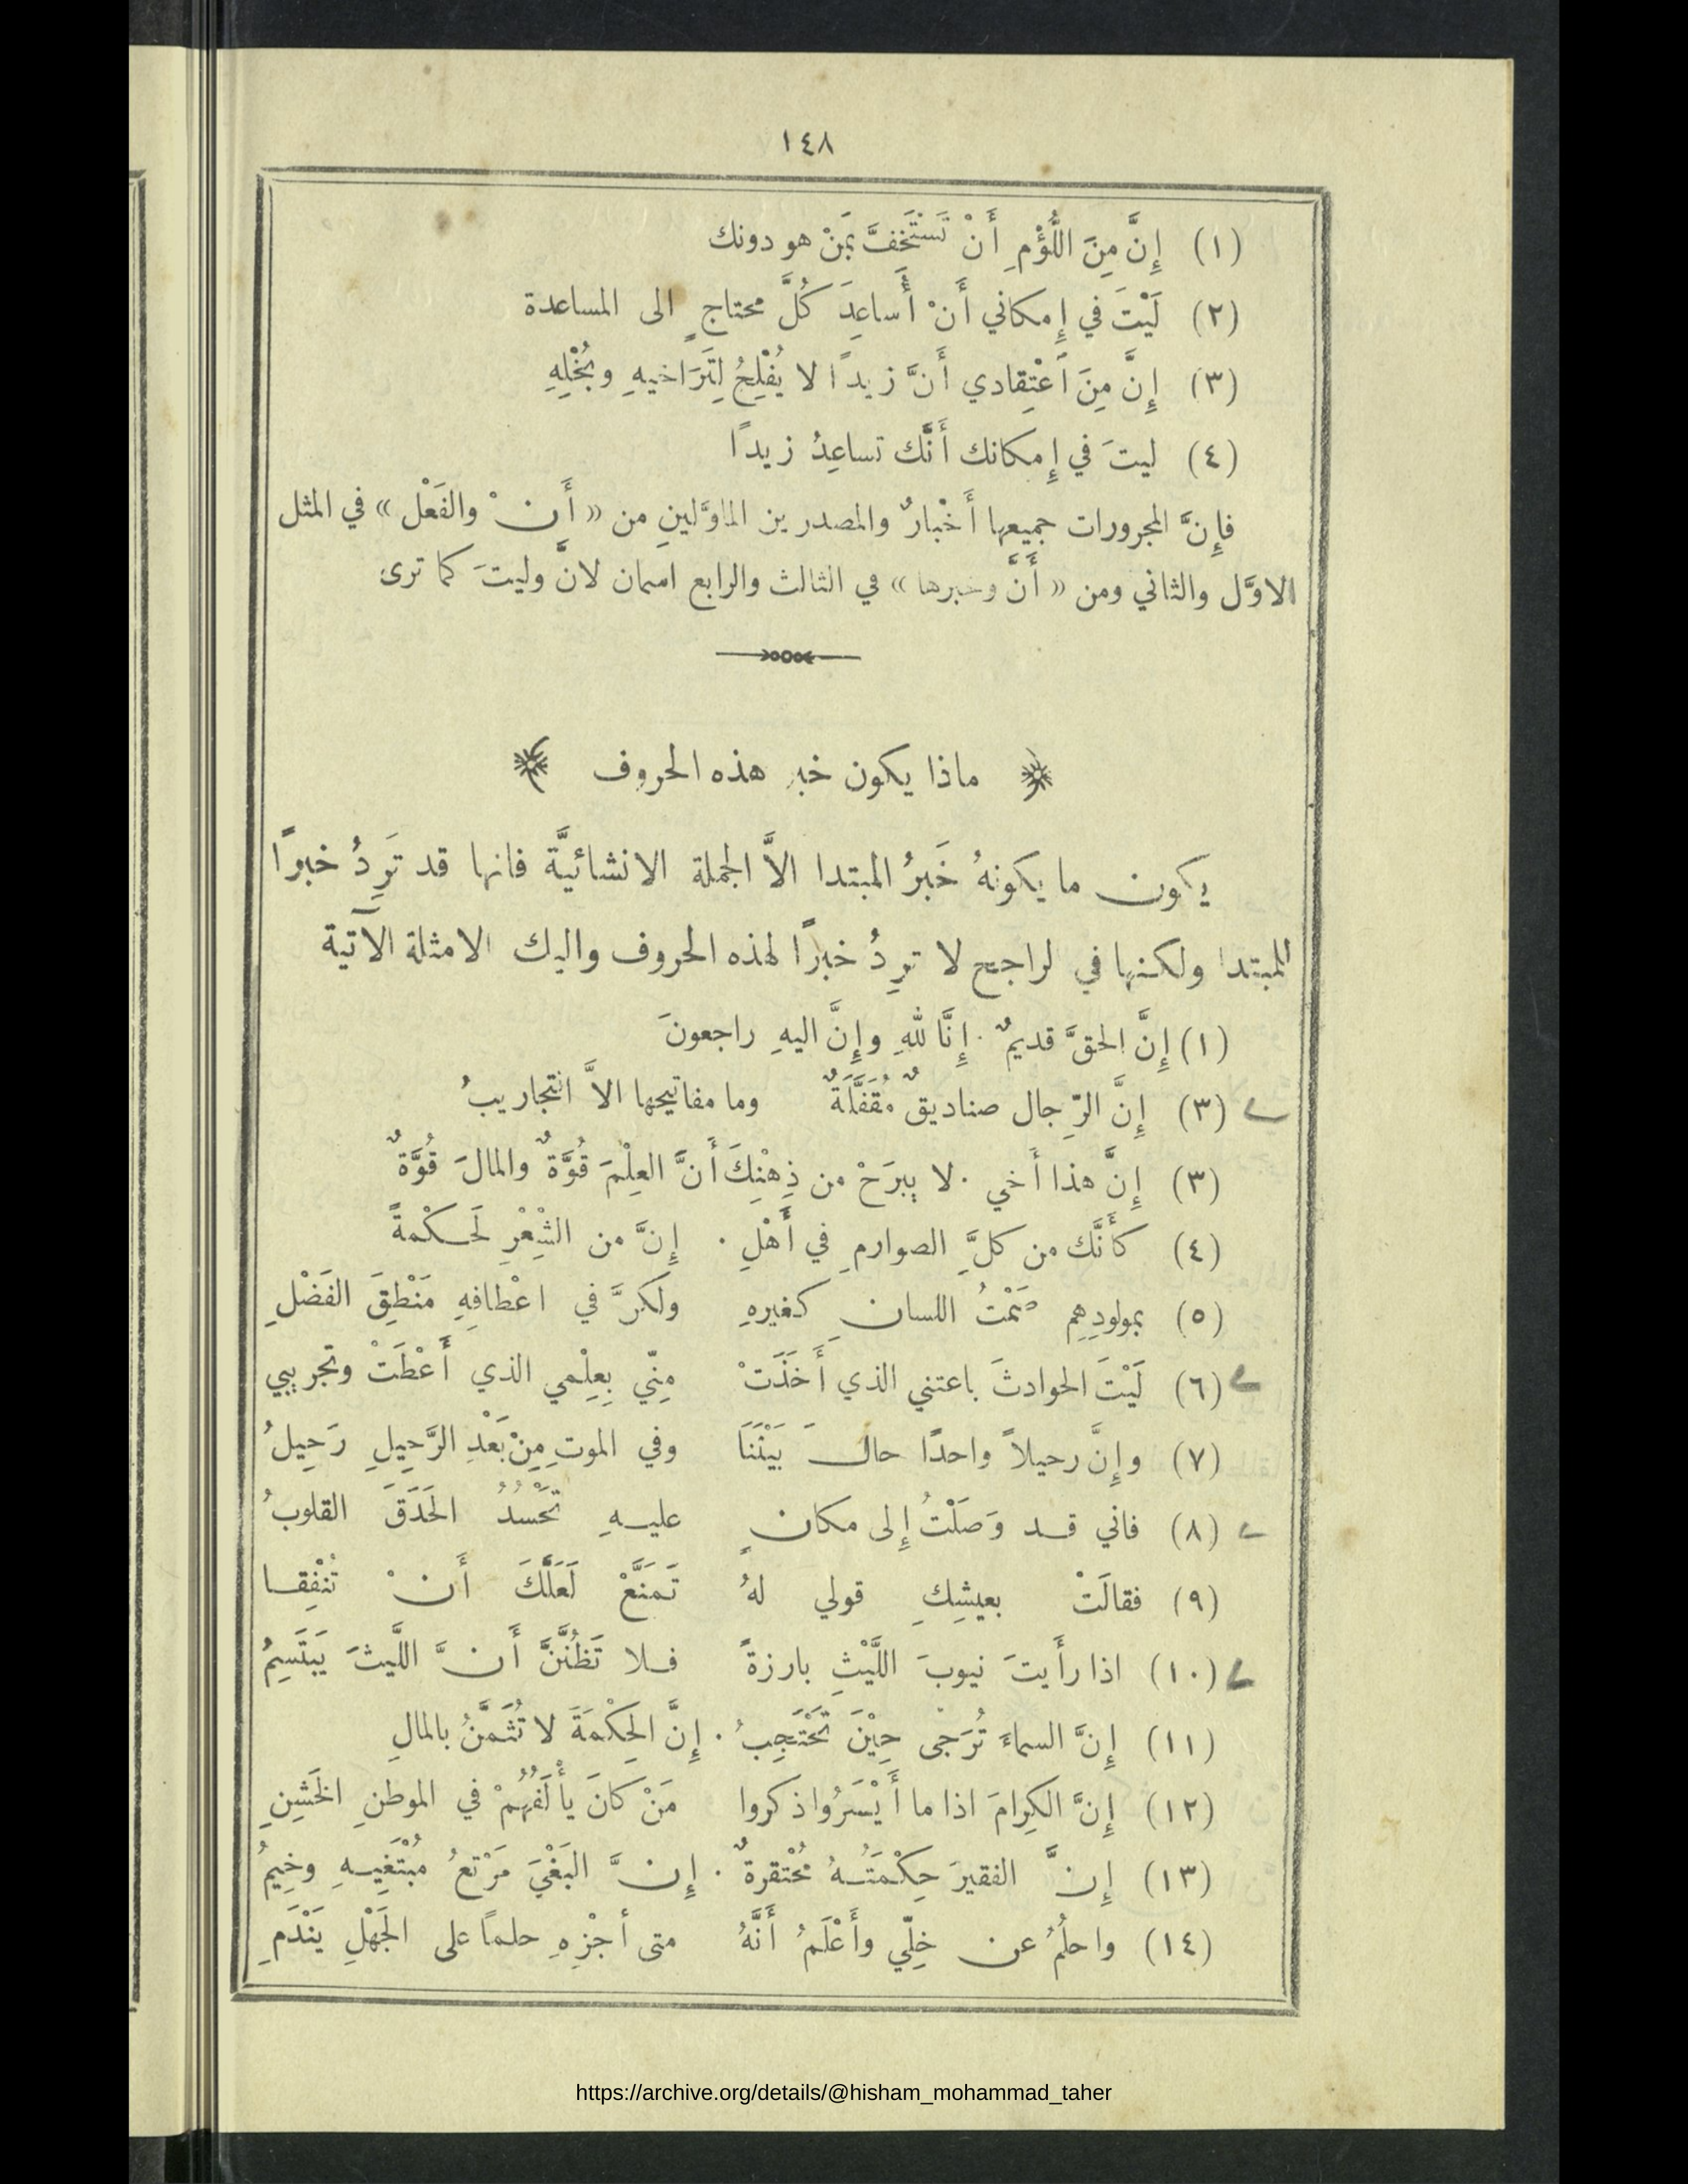 ١٤٨
(١) إِنَّ مِنَ اللُّؤْمِ أَنْ تَسْتَخِفَّ بَمَنْ هو دونك
(٢) لَيْتَ في إِمكاني أَنْ أُساعِدَ كُلَّ محتاجٍ الى المساعدة
(٣) إِنَّ مِنَ ٱعْتِقادي أَنَّ زيدًا لا يُفْلِحُ لِتَرَاخيهِ وبُخْلِهِ
(٤) ليتَ في إِمكانك أَنَّك تساعِدُ زيدًا
فإِنَّ المجرورات جميعها أَخْبارٌ والمصدرين الماوَّلينِ من « أَنْ والفَعْل » في المثل
الاوَّل والثاني ومن « أَنَّ وخبرها » في الثالث والرابع اسمان لانَّ وليتَ كما ترى
ماذا يكون خبر هذه الحروف
يكون ما يكونهُ خَبَرُ المبتدا الاَّ الجملة الانشائيَّة فانها قد تَرِدُ خبرًا
للمبتدا ولكنها في لراجح لا ترِدُ خبرًا لهذه الحروف واليك الامثلة الآتية
(١) إِنَّ الحقَّ قديمٌ . إِنَّا للهِ وإِنَّ اليهِ راجعونَ
(٣) إِنَّ الرِّجال صناديقٌ مُقَفَّلَةٌ وما مفاتيحها الاَّ التجاريبُ
(٣) إِنَّ هذا أَخي . لا يبرَحْ من ذِهْنِكَ أَنَّ العِلْمَ قُوَّةٌ والمالَ قُوَّةٌ
(٤) كأَنَّك من كلِّ الصوارمِ في أَهْلِ . إِنَّ من الشِّعْرِ لَحكْمةً
(٥) بمولودِهِم صَمْتُ اللسانِ كغيرهِ ولَكنَّ في اعْطافِهِ مَنْطِقَ الفَضْلِ
(٦) لَيْتَ الحوادثَ باعتني الذي أَخَذَتْ مِنّي بِعِلْمي الذي أَعْطَتْ وتجريبي
(٧) وإِنَّ رحيلاً واحدًا حالَ بَيْنَنَا وفي الموتِ مِنْ بَعْدِ الرَّحِيلِ رَحِيلُ
(٨) فاني قد وَصَلْتُ إِلى مكانٍ عليهِ تَحْسُدُ الحَدَقَ القلوبُ
(٩) فقالَتْ بعيشِكِ قولي لهُ تَمَنَّعْ لَعَلَّكَ أَنْ تُنْفِقا
(١٠) اذا رأَيتَ نيوبَ اللَّيْثِ بارزةً فلا تَظُنَّنَّ أَنَّ اللَّيثَ يَبتَسِمُ
(١١) إِنَّ السماءَ تُرَجْى حِيْنَ تَحْتَجِبُ . إِنَّ الحِكْمَةَ لا تُثَمَّنُ بالمالِ
(١٢) إِنَّ الكِرامَ اذا ما أَيْسَرُوا ذكروا مَنْ كانَ يأْلَفُهُمْ في الموطنِ الخَشِنِ
(١٣) إِنَّ الفقيرَ حِكْمَتُهُ مُحْتقرةٌ . إِنَّ البَغْيَ مَرْتعُ مُبْتَغِيهِ وخِيمُ
(١٤) واحلُمُ عن خِلّي وأَعْلَمُ أَنَّهُ متى أجْزِهِ حلماً على الجَهْلِ يَنْدَمِ
https://archive.org/details/@hisham_mohammad_taher